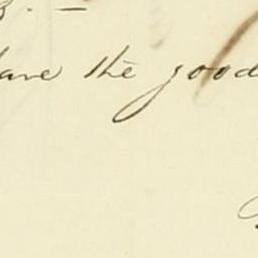 have the good